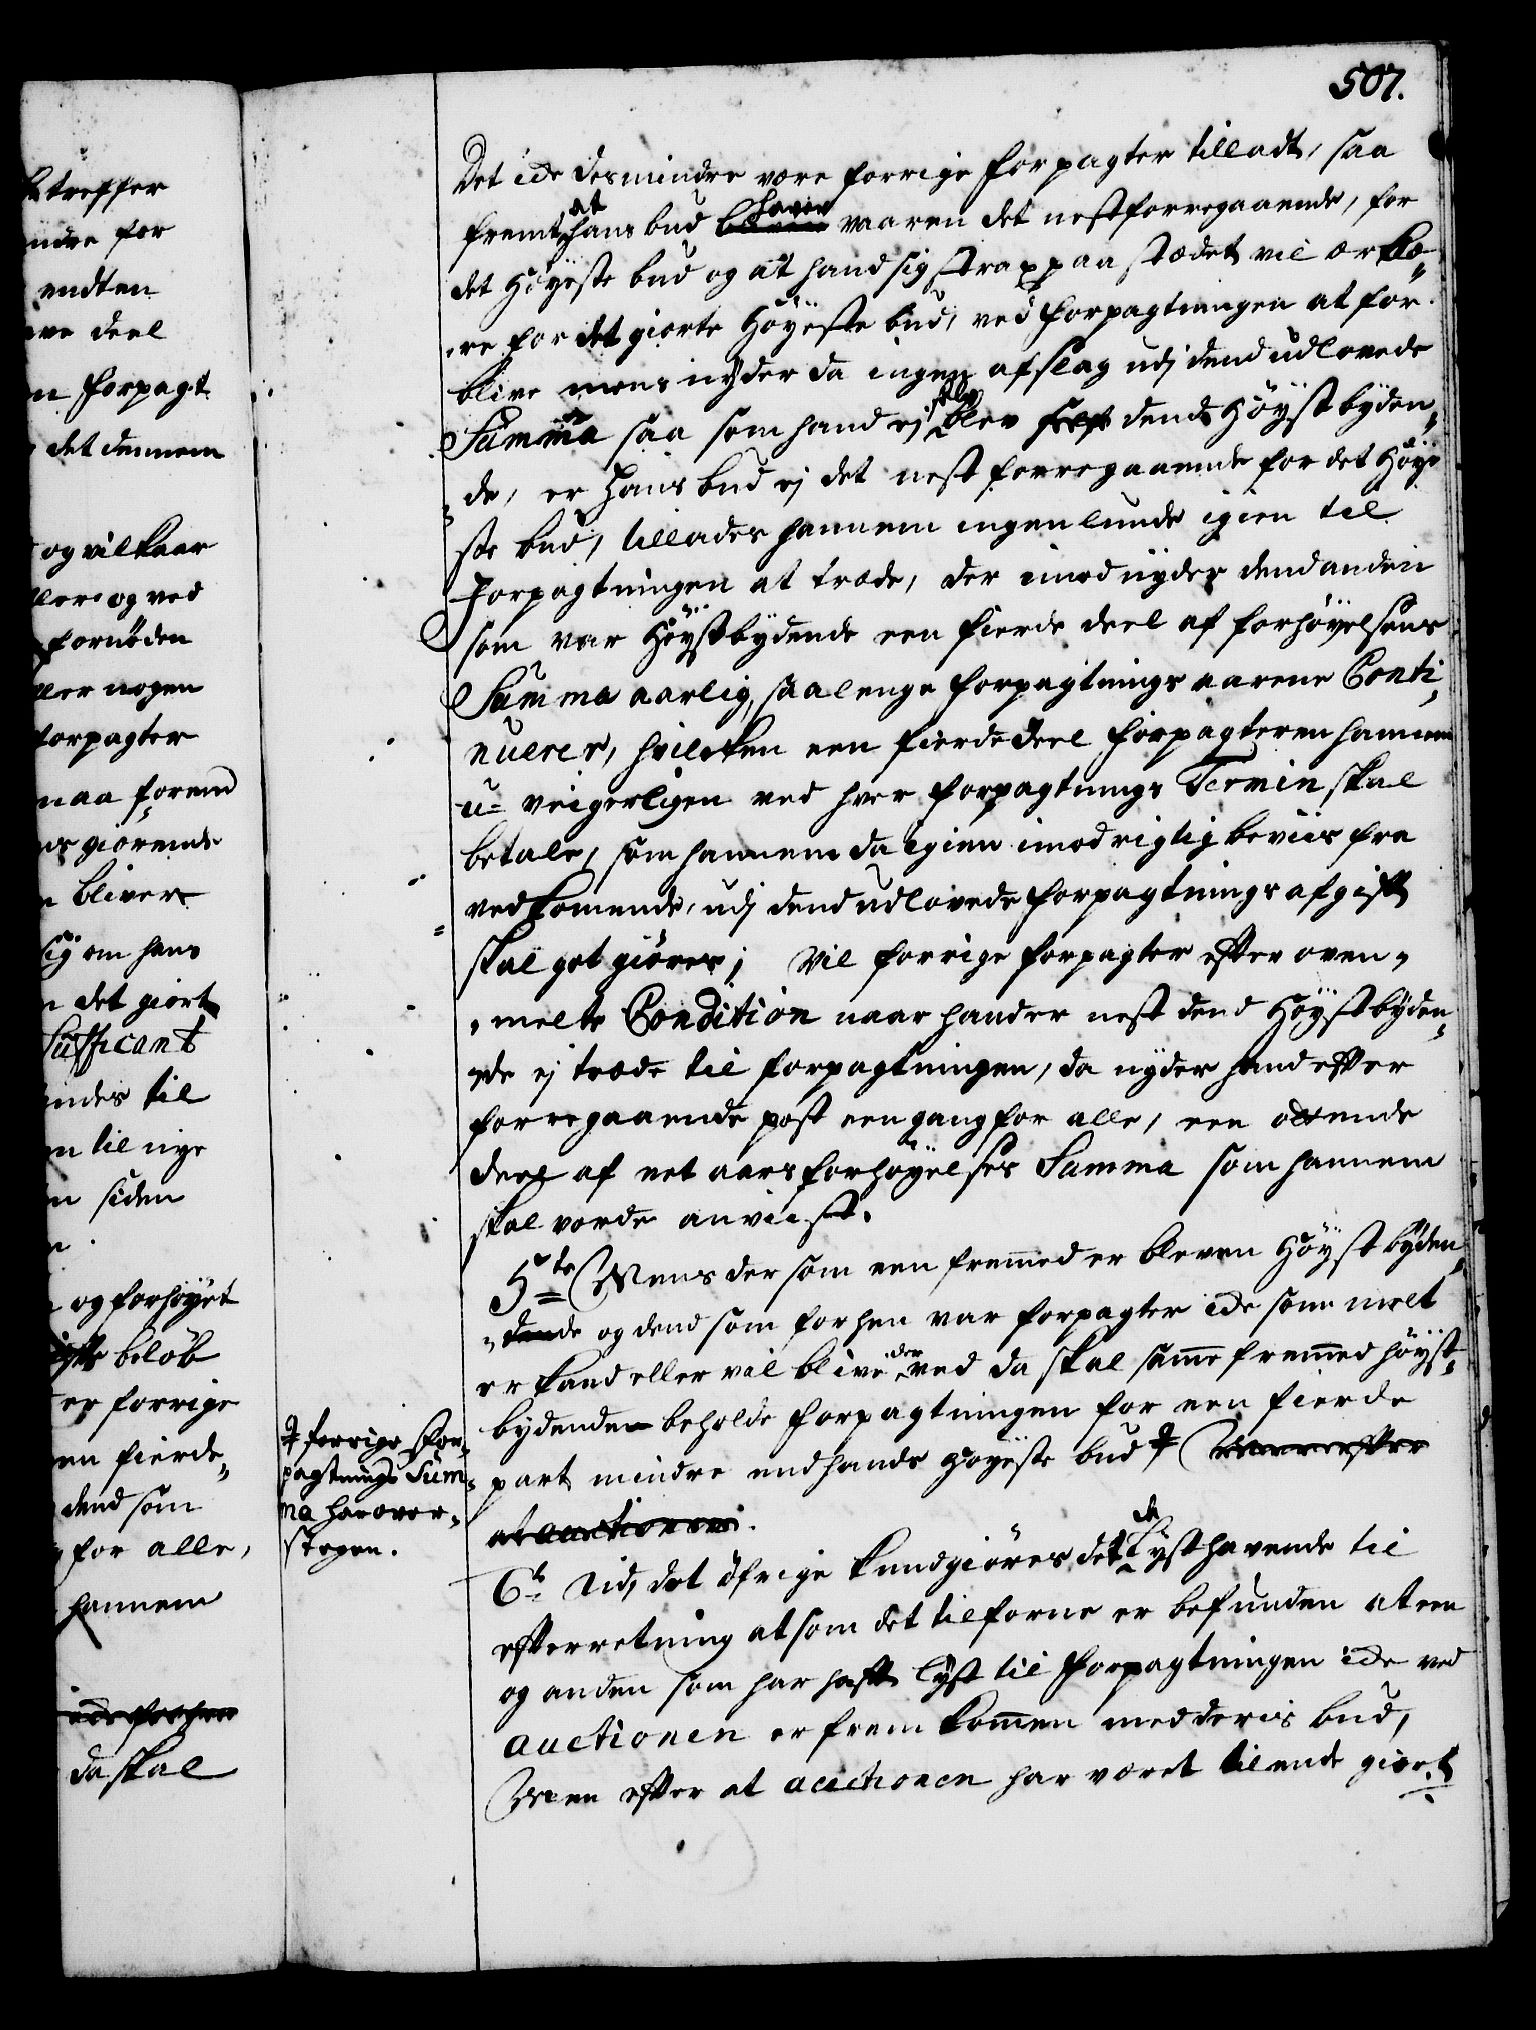 507.
Det icke desmindre være forrige forpagter tilladt, saa
fremt at hans bud bleven haver vaaren det nestforregaaende, for
det Höyeste bud og at hand sig strax paa stædet vil ærklæ„
„re for det giorte Höyeste bud, ved forpagtningen at for„
blive mens nÿder da ingen afslag udj dend udlovede
Summa saa som hand ej selv blev self dend Höyst byden„
„de, er Hans bud ej det nest forregaaende for det Höye
ste bud, tillades hannem ingenlunde igien til
Forpagtningen at træde, der imod nyder dend anden
som var Höystbydende een fierde deel af forhöyelsens
Summa aarlig, saalenge forpagtnings aarene Conti„
nuerer, hvilcken een fierdedeel forpagteren hannem
u= veigerligen ved hver forpagtnings Termin skal
betale, som hannem da igien imod rigtig beviis fra
vedkomende, udj dend udlovede forpagtnings afgift
skal got giöres; Vil forrige forpagter efter oven„
„melte Condition naar hand er nest dend Höystbyden„
„de ej træde til forpagtningen, da nyder hand efter
forregaaende post een gang for alle, een ottende
deel af eet aars forhöyelses Summa som hannem
skal vorde anviist.
5te Mens der som een fremed er bleven Höyst byden„
„dende og dend som forhen var forpagter icke som melt
er kand eller vil blive der ved da skal same fremed höyst„
bydenden beholde forpagtningen for een fierde
part mindre end hands Höyeste bud ‡
at auctionen.
‡ forrige For„
pagtnings Sum„
ma har over„
stegen.
6te Udj det öfrige kundgiöres det de Lysthavende til
efterretning at som det tilforne er befunden at een
og anden som har haft lÿst til forpagtningen icke ved
auctionen er frem komen med deris bud,
Men efter at auctionen har været til ende giort
treffer
mindre for
endten
deel
forpagt
det dennem
og vilkaar
og ved
fornöden
nogen
forpagter
maa forend
giörende
bliver
sig om hans
det giort
Sufficant
til
til nye
siden
og forhöyet
belöb
er forrige
een fierde„
dend som
for alle,
hannem
da skal